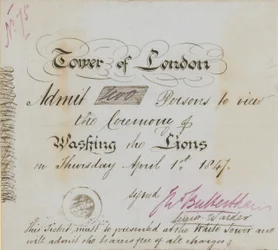 No. 75
Tower of London
Admit two Persons to view
the Ceremony of
Washing the Lions
on Thursday April 1st 1847.
signed
Warder
This Ticket must be presented at the White Tower and
will admit the bearer free of all charges